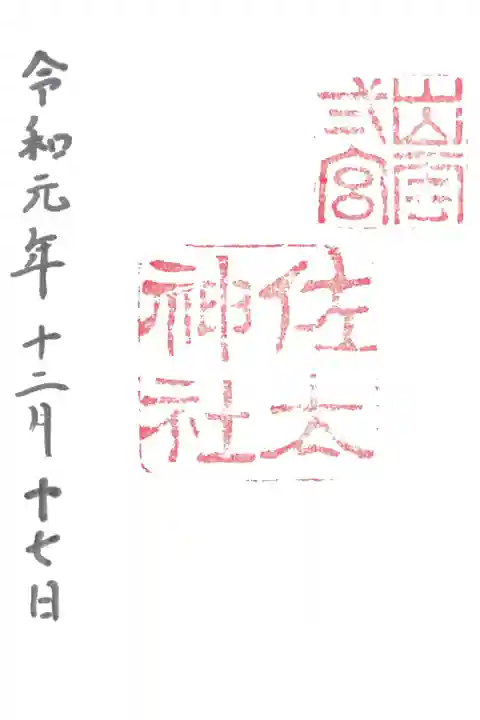 出雲
弍宮
佐太
神社
令和元年十二月十七日